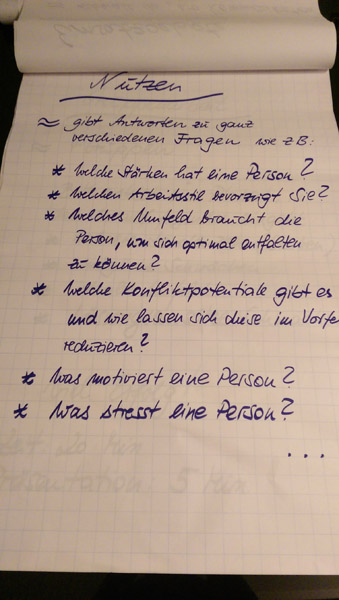 Nutzen
≈ gibt Antworten zu ganz
verschiedenen Fragen wie z.B:
* Welche Stärken hat eine Person?
* Welchen Arbeitsstil bevorzugt Sie?
* Welches Umfeld braucht die
Person, um sich optimal entfalten
zu können?
* Welche Konfliktpotentiale gibt es
und wie lassen sich diese im Vorfe
reduzieren?
* Was motiviert eine Person?
* Was stresst eine Person?
...
20 Min
Präsentation: 5 Min